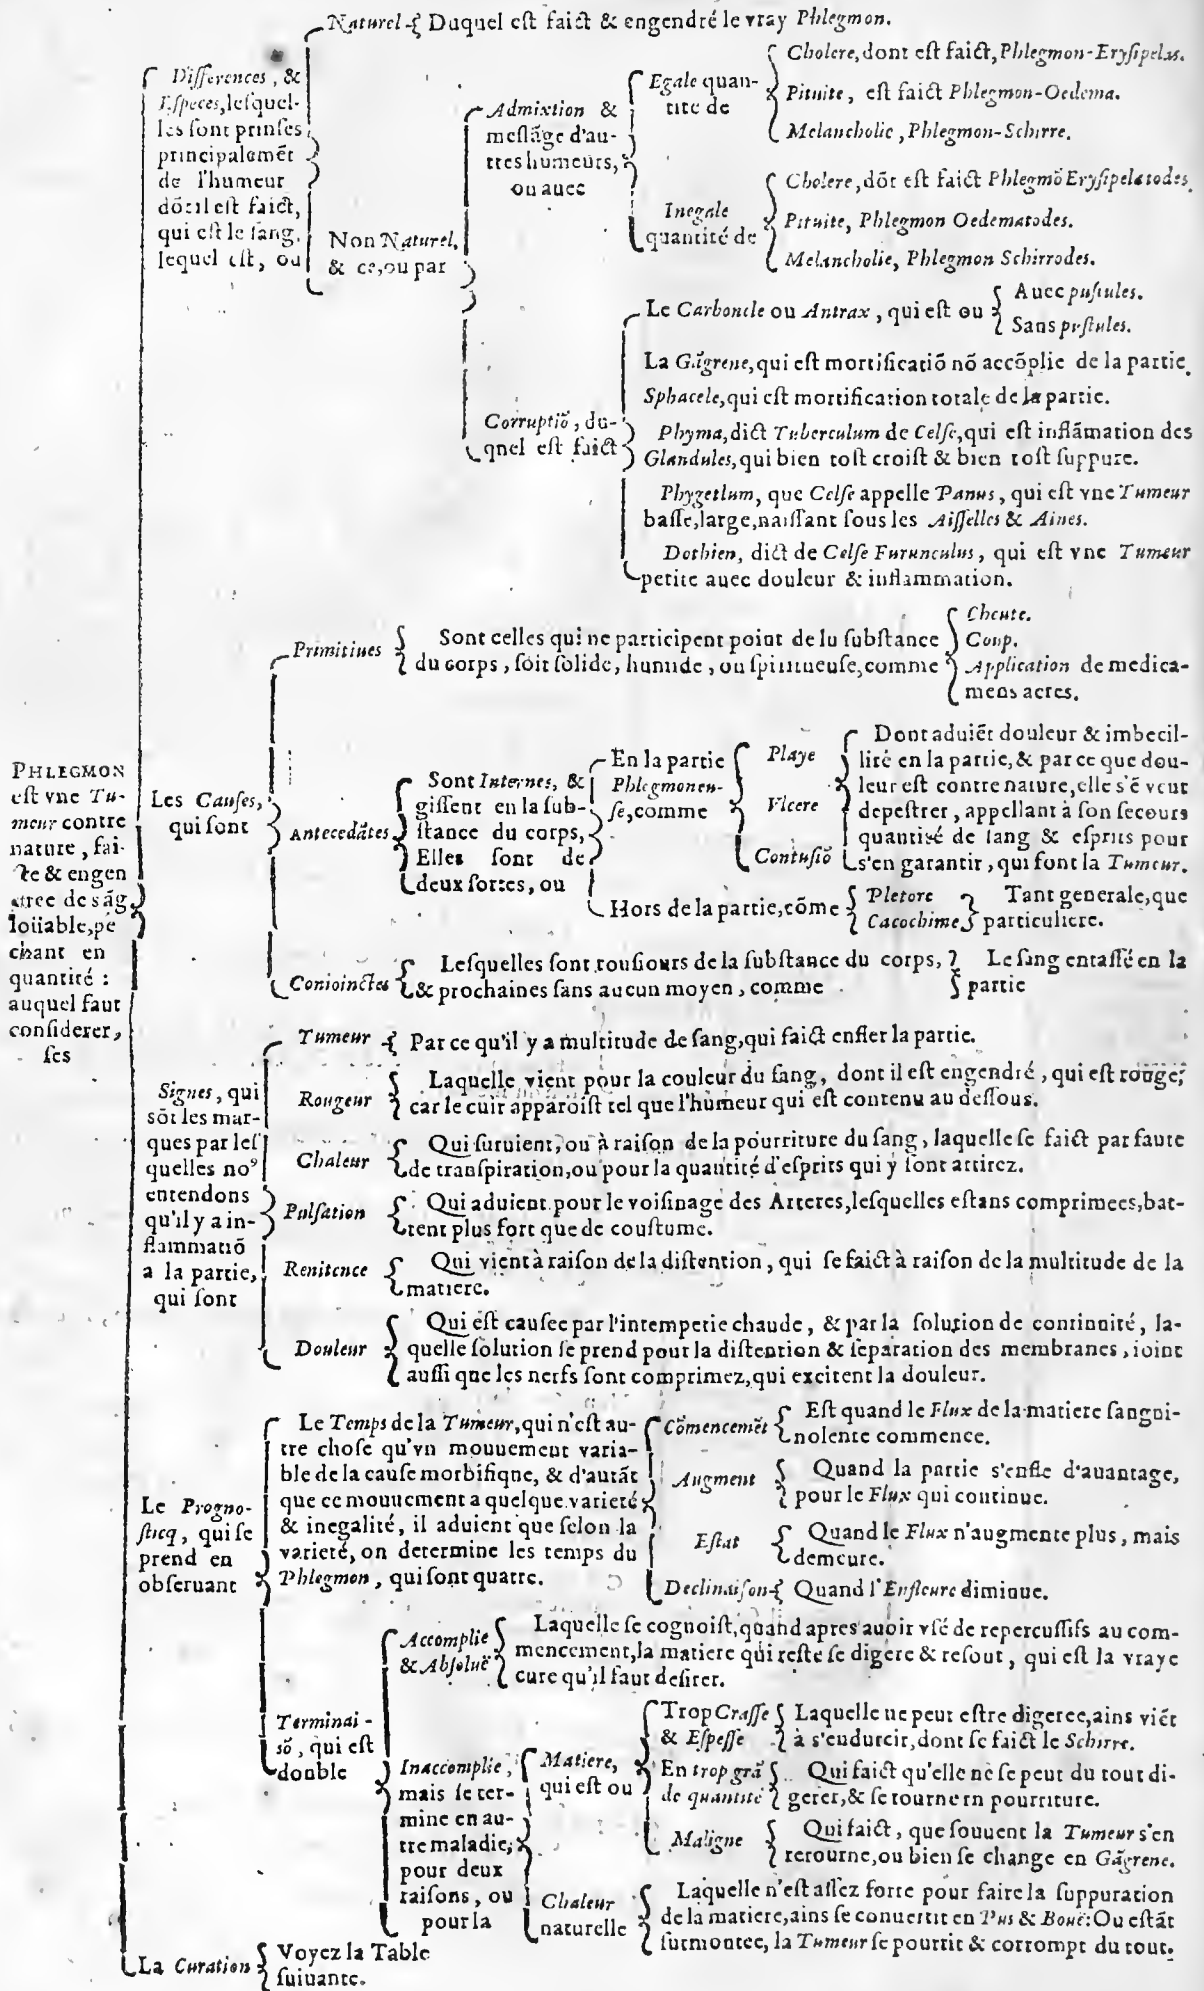 Naturel Duquel eſt faict & engendré le vray Phlegmon.
Differences, &
Eſpeces, leſquel-
les ſont prinſes
principalemẽt
de l'humeur
dõt il eſt faict,
qui eſt le ſang,
lequel eſt, ou
Non Naturel,
& ce, ou par
Admixtion &
meſlãge d'au-
tres humeurs,
ou auec
Egale quan-
tité de
Cholere, dont eſt faict, Phlegmon-Eryſipelas.
Pituite, eſt faict Phlegmon-Oedema.
Melancholie, Phlegmon-Schirre.
Inegale
quantité de
Cholere, dõt eſt faict Phlegmõ Eryſipelatodes.
Pituite, Phlegmon Oedematodes.
Melancholie, Phlegmon Schirrodes.
Corruptiõ, du-
quel eſt faict
Le Carboncle ou Antrax, qui eſt ou
Auec puſtules.
Sans puſtules.
La Gãgrene, qui eſt mortificatiõ nõ accõplie de la partie.
Sphacele, qui eſt mortification totale de la partie.
Phyma, dict Tuberculum de Celſe, qui eſt inflãmation des
Glandules, qui bien toſt croiſt & bien toſt ſuppure.
Phygetlum, que Celſe appelle Panus, qui eſt vne Tumeur
baſſe, large, naiſſant ſous les Aiſſelles & Aines.
Dothien, dict de Celſe Furunculus, qui eſt vne Tumeur
petite auec douleur & inflammation.
PHLEGMON
eſt vne Tu-
meur contre
nature, fai-
cte & engen
dree de sãg
loüable, pé
chant en
quantité :
auquel faut
conſiderer,
ſes
Les Cauſes,
qui ſont
Primitiues
Sont celles qui ne participent point de lu ſubſtance
du corps, ſoit ſolide, humide, ou ſpiritueuſe, comme
Cheute.
Coup.
Application de medica-
mens acres.
Antecedãtes
Sont Internes, &
giſſent en la ſub-
ſtance du corps,
Elles ſont de
deux ſortes, ou
En la partie
Phlegmoneu-
ſe, comme
Playe
Vlcere
Contuſiõ
Dont aduiẽt douleur & imbecil-
lité en la partie, & par ce que dou-
leur eſt contre nature, elle s'ẽ veut
depeſtrer, appellant à ſon ſecours
quantité de ſang & eſprits pour
s'en garantir, qui font la Tumeur.
Hors de la partie, cõme
Pletore
Cacochime
Tant generale, que
particuliere.
Conioinctes
Leſquelles ſont touſiours de la ſubſtance du corps,
& prochaines ſans aucun moyen, comme
Le ſang entaſſé en la
partie
Signes, qui
sõt les mar-
ques par leſ
quelles noꝰ
entendons
qu'il y a in-
flammatiõ
a la partie,
qui ſont
Tumeur Par ce qu'il y a multitude de ſang, qui faict enfler la partie.
Rougeur
Laquelle vient pour la couleur du ſang, dont il eſt engendré, qui eſt rouge;
car le cuir apparoiſt tel que l'humeur qui eſt contenu au deſſous.
Chaleur
Qui ſuruient, ou à raiſon de la pourriture du ſang, laquelle ſe faict par faute
de tranſpiration, ou pour la quantité d'eſprits qui y ſont attirez.
Pulſation
Qui aduient pour le voiſinage des Arteres, leſquelles eſtans comprimees, bat-
tent plus fort que de couſtume.
Renitence
Qui vient à raiſon de la diſtention, qui ſe faict à raiſon de la multitude de la
matiere.
Douleur
Qui eſt cauſee par l'intemperie chaude, & par la ſolution de continuité, la-
quelle ſolution ſe prend pour la diſtention & ſeparation des membranes, ioint
auſſi que les nerfs ſont comprimez, qui excitent la douleur.
Le Progno-
ſticq, qui ſe
prend en
obſeruant
Le Temps de la Tumeur, qui n'eſt au-
tre choſe qu'vn mouuement varia-
ble de la cauſe morbifique, & d'autãt
que ce mouuement a quelque varieté
& inegalité, il aduient que ſelon la
varieté, on determine les temps du
Phlegmon, qui ſont quatre.
Cõmencemẽt
Eſt quand le Flux de la matiere ſangui-
nolente commence.
Augment
Quand la partie s'enfle d'auantage,
pour le Flux qui continue.
Eſtat
Quand le Flux n'augmente plus, mais
demeure.
Declinaiſon Quand l'Enfleure diminue.
Terminai-
sõ, qui eſt
double
Accomplie
& Abſoluë
Laquelle ſe cognoiſt, quand apres auoir vſé de repercuſſifs au com-
mencement, la matiere qui reſte ſe digere & reſout, qui eſt la vraye
cure qu'il faut deſirer.
Inaccomplie,
mais ſe ter-
mine en au-
tre maladie,
pour deux
raiſons, ou
pour la
Matiere,
qui eſt ou
Trop Craſſe
& Eſpeſſe
Laquelle ne peut eſtre digeree, ains viẽt
à s'endurcir, dont ſe faict le Schirre.
En trop grã
de quantité
Qui faict qu'elle ne ſe peut du tout di-
gerer, & ſe tourne rn pourriture.
Maligne
Qui faict, que ſouuent la Tumeur s'en
retourne, ou bien ſe change en Gãgrene.
Chaleur
naturelle
Laquelle n'eſt aſſez forte pour faire la ſuppuration
de la matiere, ains ſe conuertit en Pus & Bouë: Ou eſtãt
ſurmontee, la Tumeur ſe pourrit & corrompt du tout.
La Curation
Voyez la Table
ſuiuante.